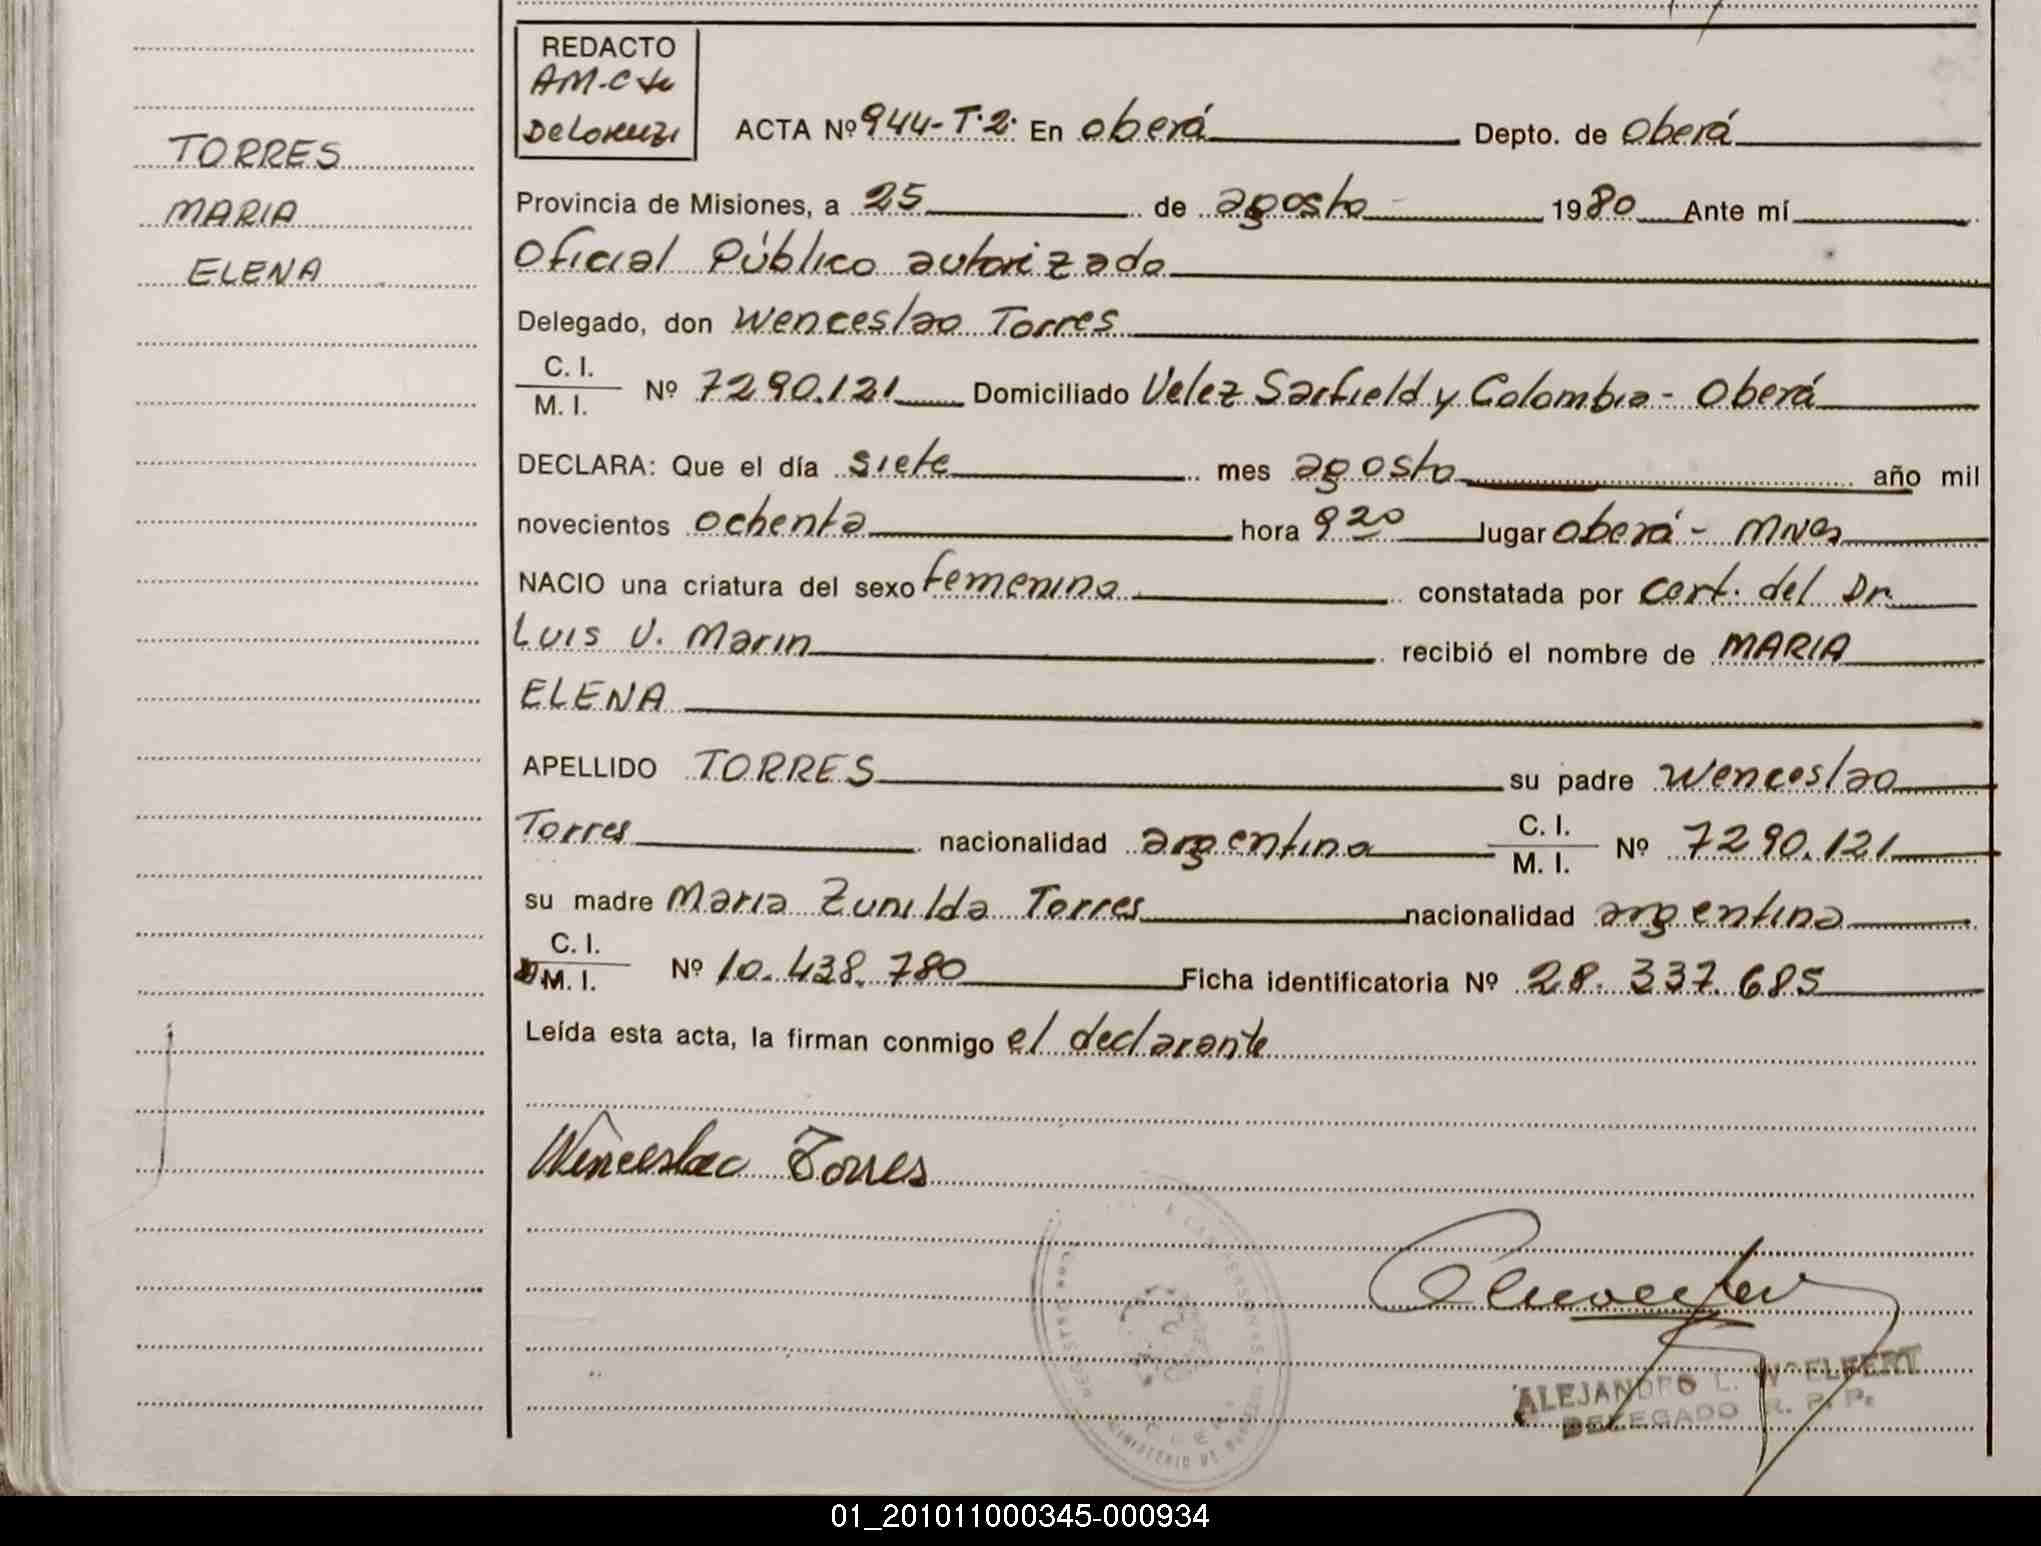 REDACTO
AM-C de
De Lorenzi
TORRES
MARIA
ELENA
ACTA Nº 944-T.2. En Oberá Depto. de Oberá
Provincia de Misiones, a 25 de agosto 1980 Ante mí
Oficial Público autorizado
Delegado, don Wenceslao Torres
C. I.
M. I. Nº 7290.121 Domiciliado Velez Sarfield y Colombia - Oberá
DECLARA: Que el día siete mes agosto año mil
novecientos ochenta hora 9 20 lugar Oberá - Mnes
NACIO una criatura del sexo femenino constatada por cert. del Dr.
Luis V. Marin recibió el nombre de MARIA
ELENA
APELLIDO TORRES su padre Wenceslao
Torres nacionalidad argentina C. I. M. I. Nº 7290.121
su madre Maria Zunilda Torres nacionalidad argentina
C. I.
M. I. Nº 10.438.780 Ficha identificatoria Nº 28.337.685
Leída esta acta, la firman conmigo el declarante
Wenceslao Torres
ALEJANDRO L. WOELFERT
DELEGADO R. P. P.
01_201011000345-000934